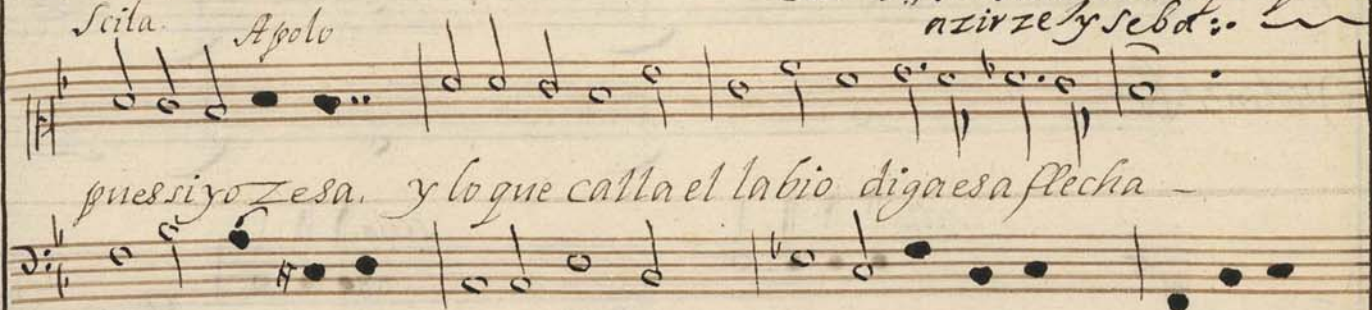 Scila. Apolo
puessiyo zesa. y lo que calla el labio diga esa flecha –